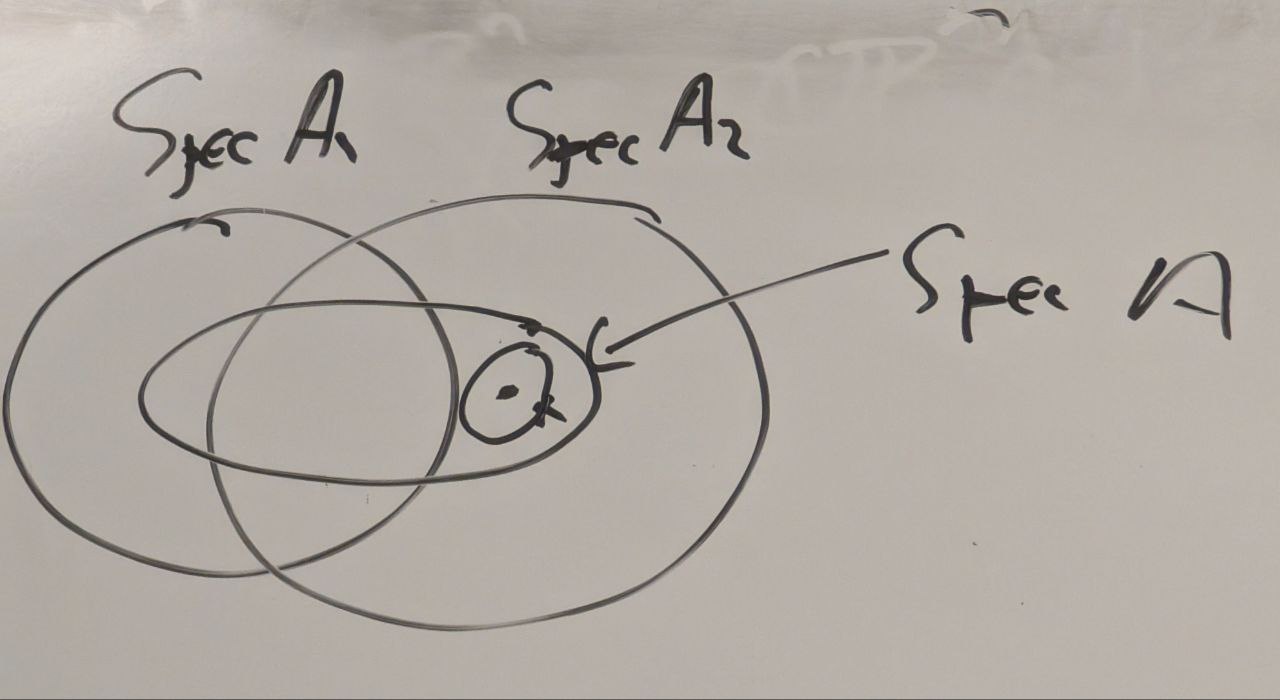 Spec A₁
Spec A₂
Spec A